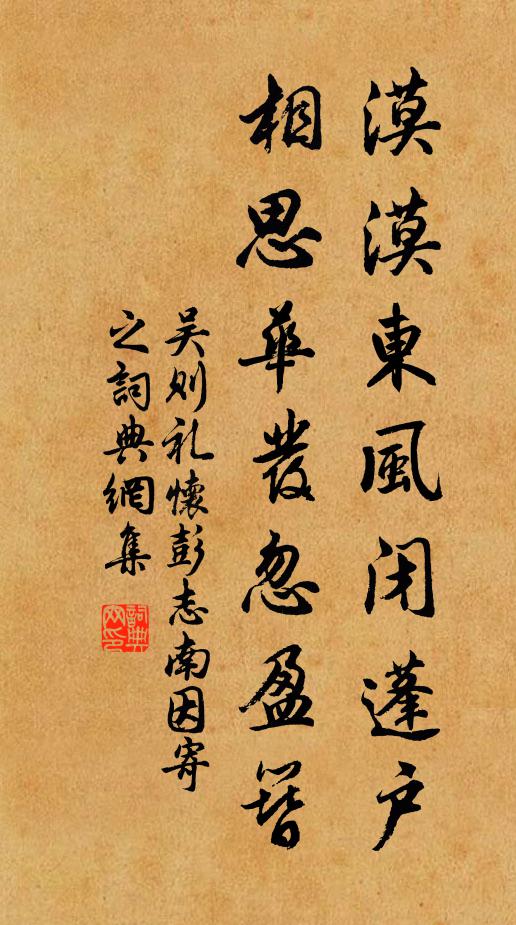 漠漠東風闭蓬户
相思華發忽盈簪
吴则礼懷彭志南因寄
之詞典網集
詞典
网印